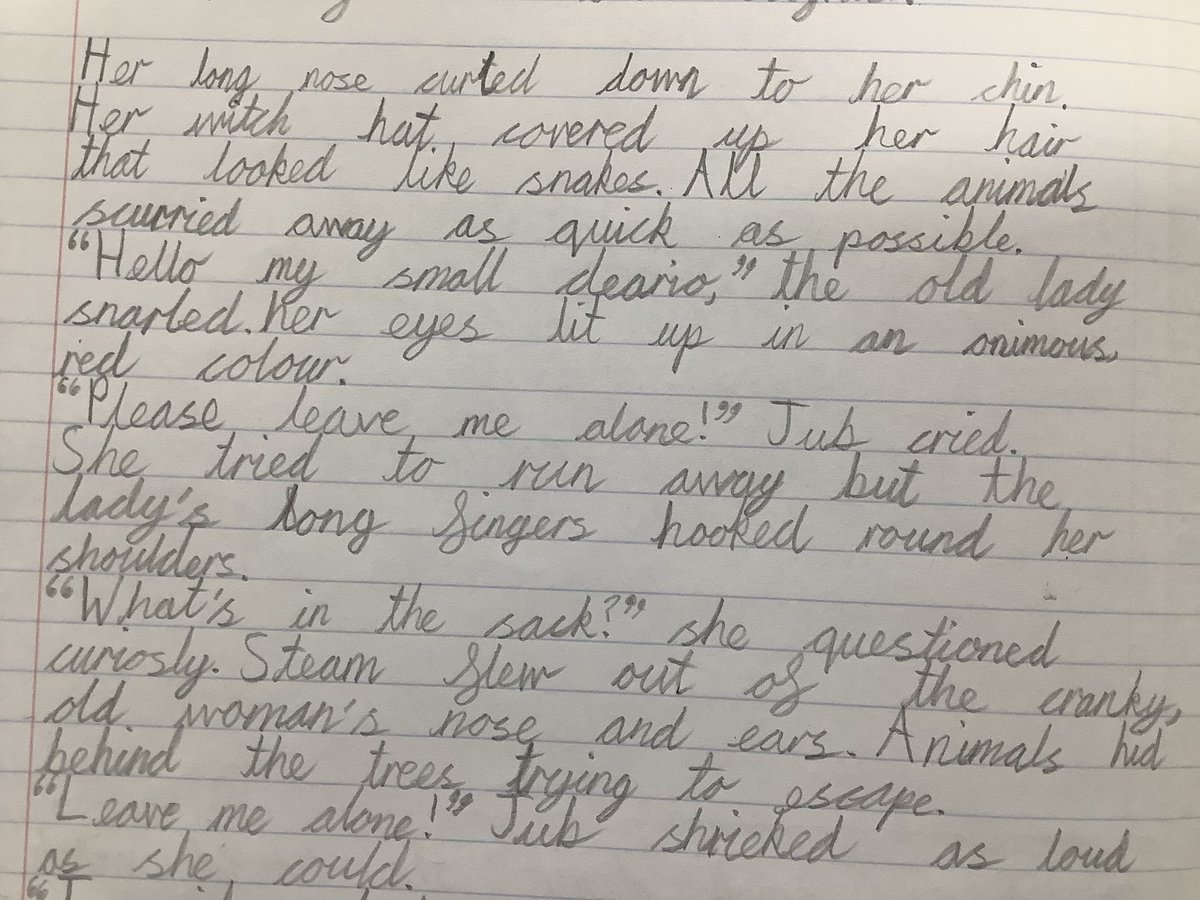 Her long nose curled down to her chin.
Her witch hat covered up her hair
that looked like snakes. All the animals
scurried away as quick as possible.
“Hello my small deario,” the old lady
snarled. her eyes lit up in an onimous,
red colour.
“Please leave me alone!” Jub cried.
She tried to run away but the
lady's long fingers hooked round her
shoulders.
“What's in the sack?” she questioned
curiosly. Steam flew out of the cranky,
old woman's nose and ears. Animals hid
behind the trees trying to escape.
“Leave me alone!” Jub shrieked as loud
as she could.